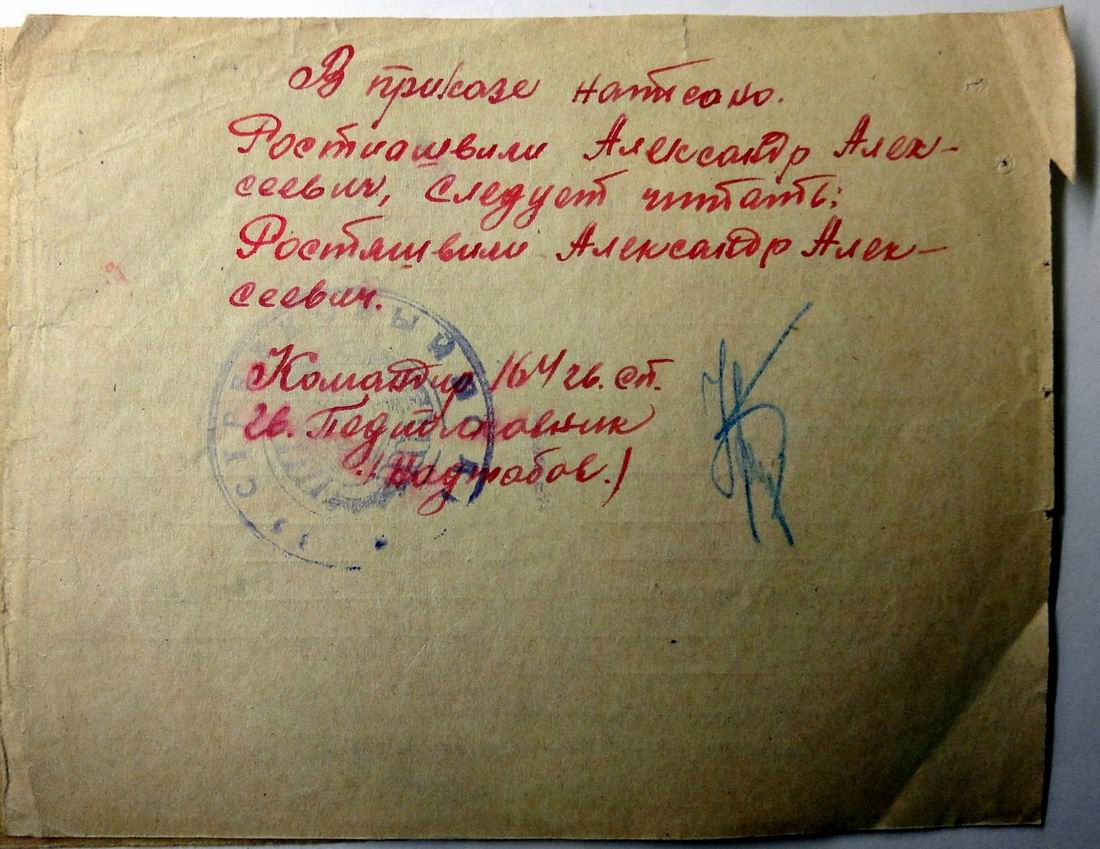 В приказе написано.
Ростиашвили Александр Алек-
сеевич, следует читать:
Ростяшвили Александр Алек-
сеевич.
Командир 164 гв. сп.
гв. Подполковник